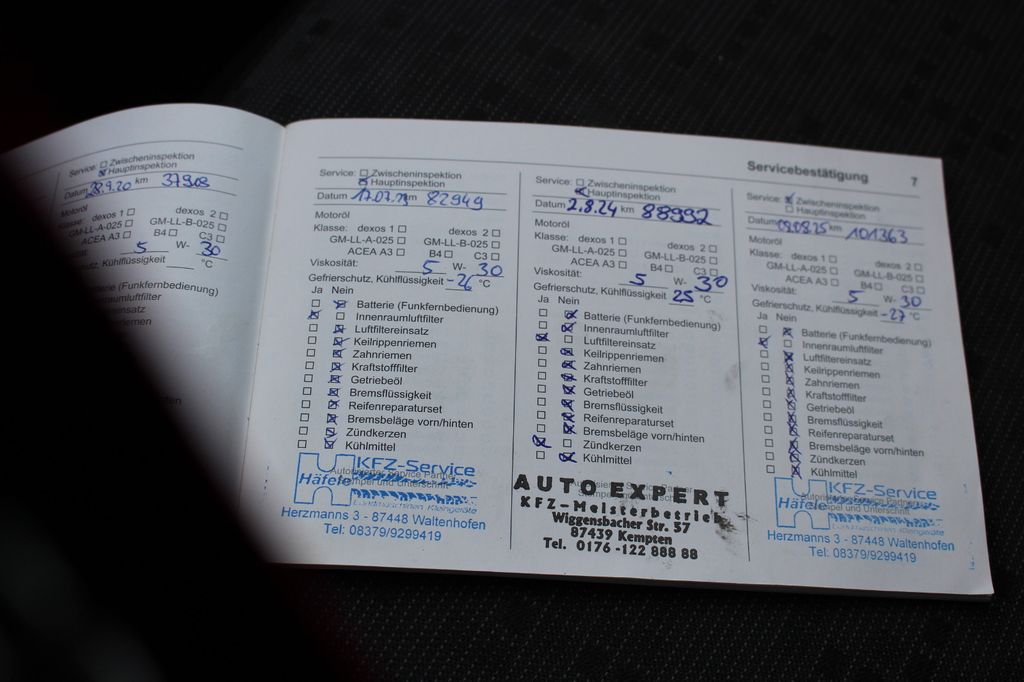 Service: Zwischeninspektion
Hauptinspektion
Datum 28.9.20 km 37908
Motoröl
Klasse: dexos 1 dexos 2
GM-LL-A-025 GM-LL-B-025
ACEA A3 B4 C3
5 W- 30
Kühlflüssigkeit °C
(Funkfernbedienung)
Servicebestätigung 7
Service: Zwischeninspektion
Hauptinspektion
Datum km 82949
Motoröl
Klasse: dexos 1 dexos 2
GM-LL-A-025 GM-LL-B-025
ACEA A3 B4 C3
Viskosität: 5 W- 30
Gefrierschutz, Kühlflüssigkeit -26 °C
Ja Nein
Batterie (Funkfernbedienung)
Innenraumluftfilter
Luftfiltereinsatz
Keilrippenriemen
Zahnriemen
Kraftstofffilter
Getriebeöl
Bremsflüssigkeit
Reifenreparaturset
Bremsbeläge vorn/hinten
Zündkerzen
Kühlmittel
Autorisierter Service Partner
Stempel und Unterschrift
KFZ-Service
Häfele
Landmaschinen Kleingeräte
Herzmanns 3 - 87448 Waltenhofen
Tel: 08379/9299419
Service: Zwischeninspektion
Hauptinspektion
Datum 2.8.24 km 88992
Motoröl
Klasse: dexos 1 dexos 2
GM-LL-A-025 GM-LL-B-025
ACEA A3 B4 C3
Viskosität: 5 W- 30
Gefrierschutz, Kühlflüssigkeit 25 °C
Ja Nein
Batterie (Funkfernbedienung)
Innenraumluftfilter
Luftfiltereinsatz
Keilrippenriemen
Zahnriemen
Kraftstofffilter
Getriebeöl
Bremsflüssigkeit
Reifenreparaturset
Bremsbeläge vorn/hinten
Zündkerzen
Kühlmittel
AUTO EXPERT
KFZ-Meisterbetrieb
Wiggensbacher Str. 37
87439 Kempten
Tel. 0176 -122 888 88
Service: Zwischeninspektion
Hauptinspektion
Datum 09.08.25 km 101363
Motoröl
Klasse: dexos 1 dexos 2
GM-LL-A-025 GM-LL-B-025
ACEA A3 B4 C3
Viskosität: 5 W- 30
Gefrierschutz, Kühlflüssigkeit -27 °C
Ja Nein
Batterie (Funkfernbedienung)
Innenraumluftfilter
Luftfiltereinsatz
Keilrippenriemen
Zahnriemen
Kraftstofffilter
Getriebeöl
Bremsflüssigkeit
Reifenreparaturset
Bremsbeläge vorn/hinten
Zündkerzen
Kühlmittel
Stempel und Unterschrift
KFZ-Service
Häfele
Landmaschinen Kleingeräte
Herzmanns 3 - 87448 Waltenhofen
Tel: 08379/9299419